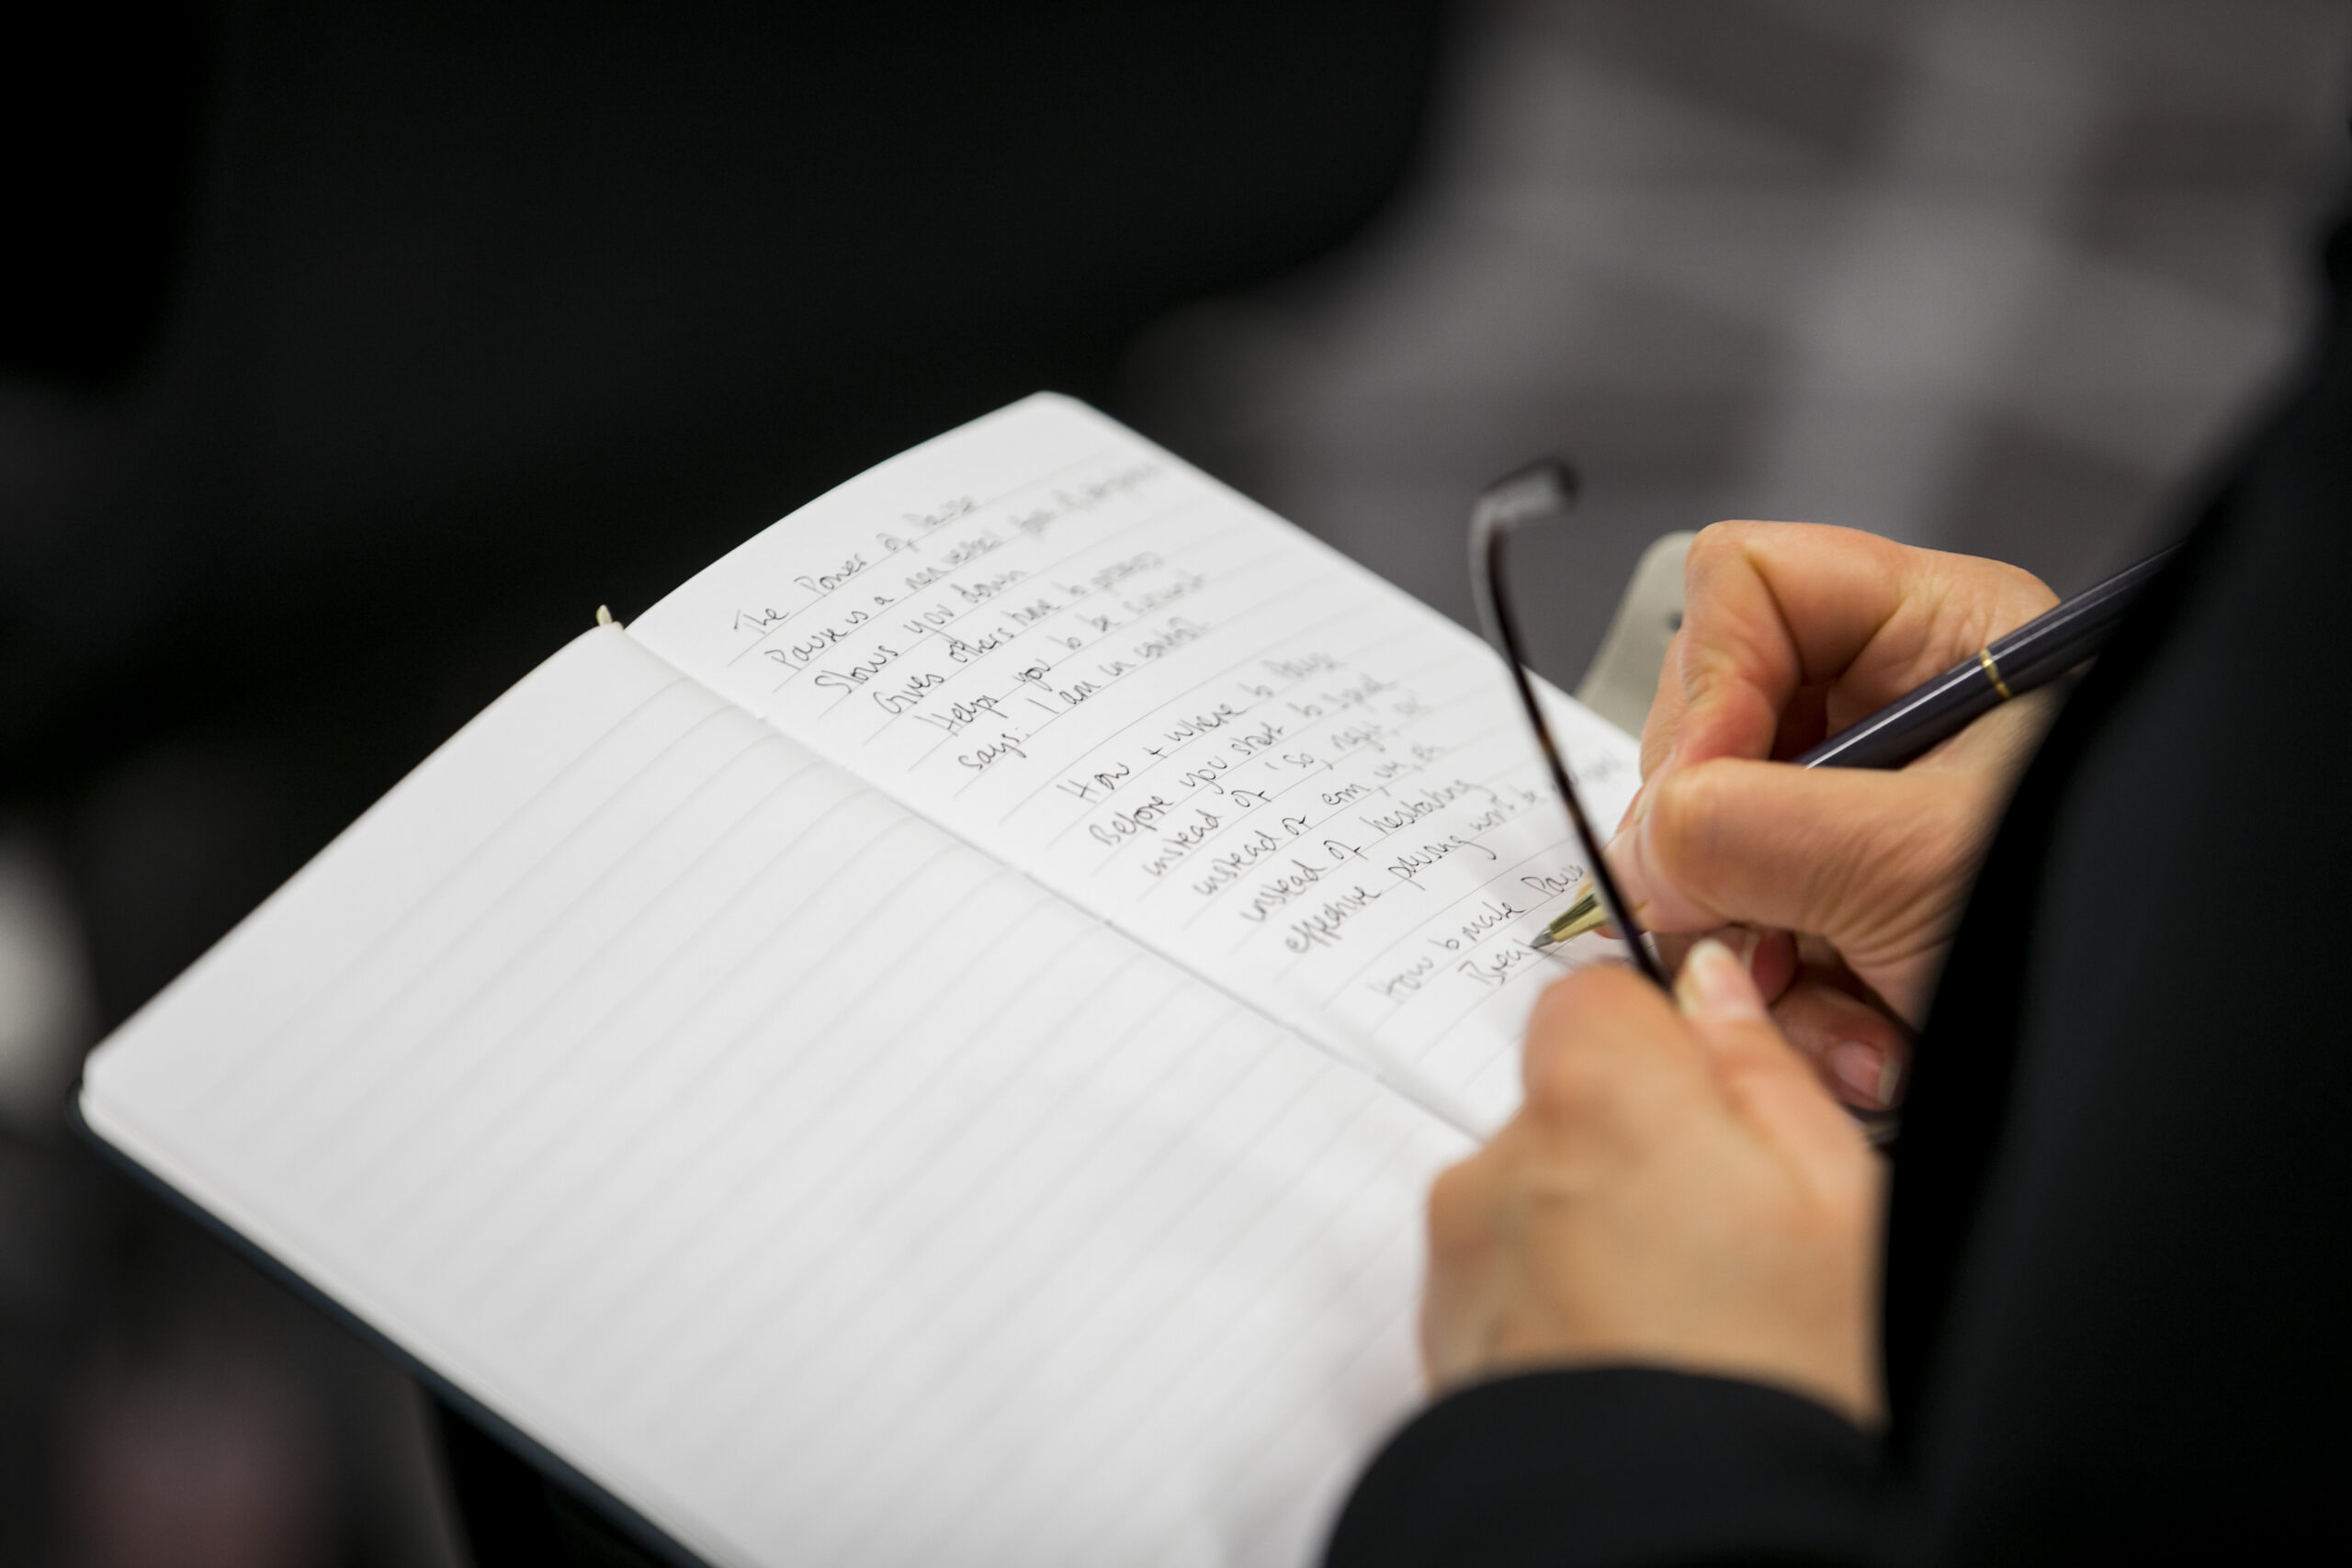 The Power of Pause
Pause is a non verbal form of
Slows you down
Gives others time to process
Helps you to be succinct
says: I am in control
How + where to Pause
Before you start to speak
instead of 'so, right, ok
instead of erm, um, er
instead of hesitating
effective pausing won't be
How to make Pause
Breat